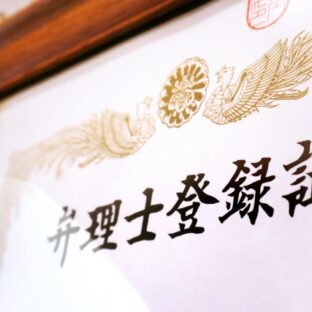 弁理士登録証